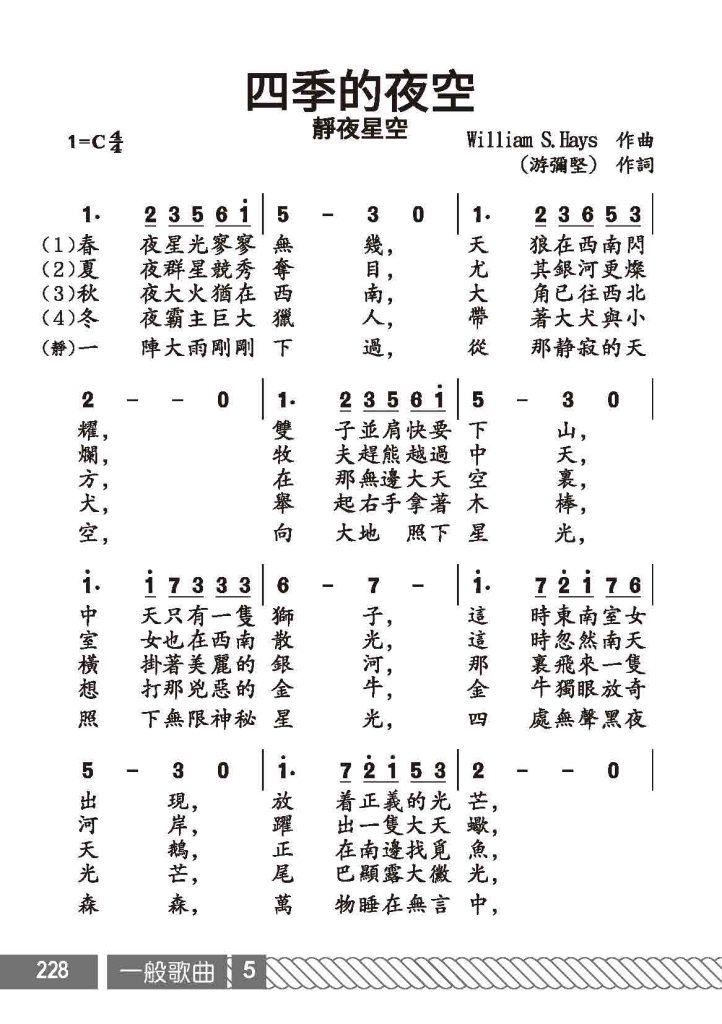 四季的夜空
靜夜星空
1=C 4/4
William S.Hays 作曲
(游彌堅) 作詞
1. 2 3 5 6 i | 5 - 3 0 | 1. 2 3 6 5 3 |
(1)春 夜星光寥寥 無 幾, 天 狼在西南閃
(2)夏 夜群星競秀 奪 目, 尤 其銀河更燦
(3)秋 夜大火猶在 西 南, 大 角已往西北
(4)冬 夜霸主巨大 獵 人, 帶 著大犬與小
(靜)一 陣大雨剛剛 下 過, 從 那静寂的天
2 - - 0 | 1. 2 3 5 6 i | 5 - 3 0 |
耀, 雙 子並肩快要 下 山,
爛, 牧 夫趕熊越過 中 天,
方, 在 那無邊大天 空 裏,
犬, 舉 起右手拿著 木 棒,
空, 向 大地 照下 星 光,
i. i 7 3 3 3 | 6 - 7 - | i. 7 2̇ i 7 6 |
中 天只有一隻 獅 子, 這 時東南室女
室 女也在西南 散 光, 這 時忽然南天
橫 掛著美麗的 銀 河, 那 裏飛來一隻
想 打那兇惡的 金 牛, 金 牛獨眼放奇
照 下無限神秘 星 光, 四 處無聲黑夜
5 - 3 0 | i. 7 2̇ i 5 3 | 2 - - 0 |
出 現, 放 着正義的光 芒,
河 岸, 躍 出一隻大天 蠍,
天 鵝, 正 在南邊找覓 魚,
光 芒, 尾 巴顯露大黴 光,
森 森, 萬 物睡在無言 中,
228 一般歌曲 5